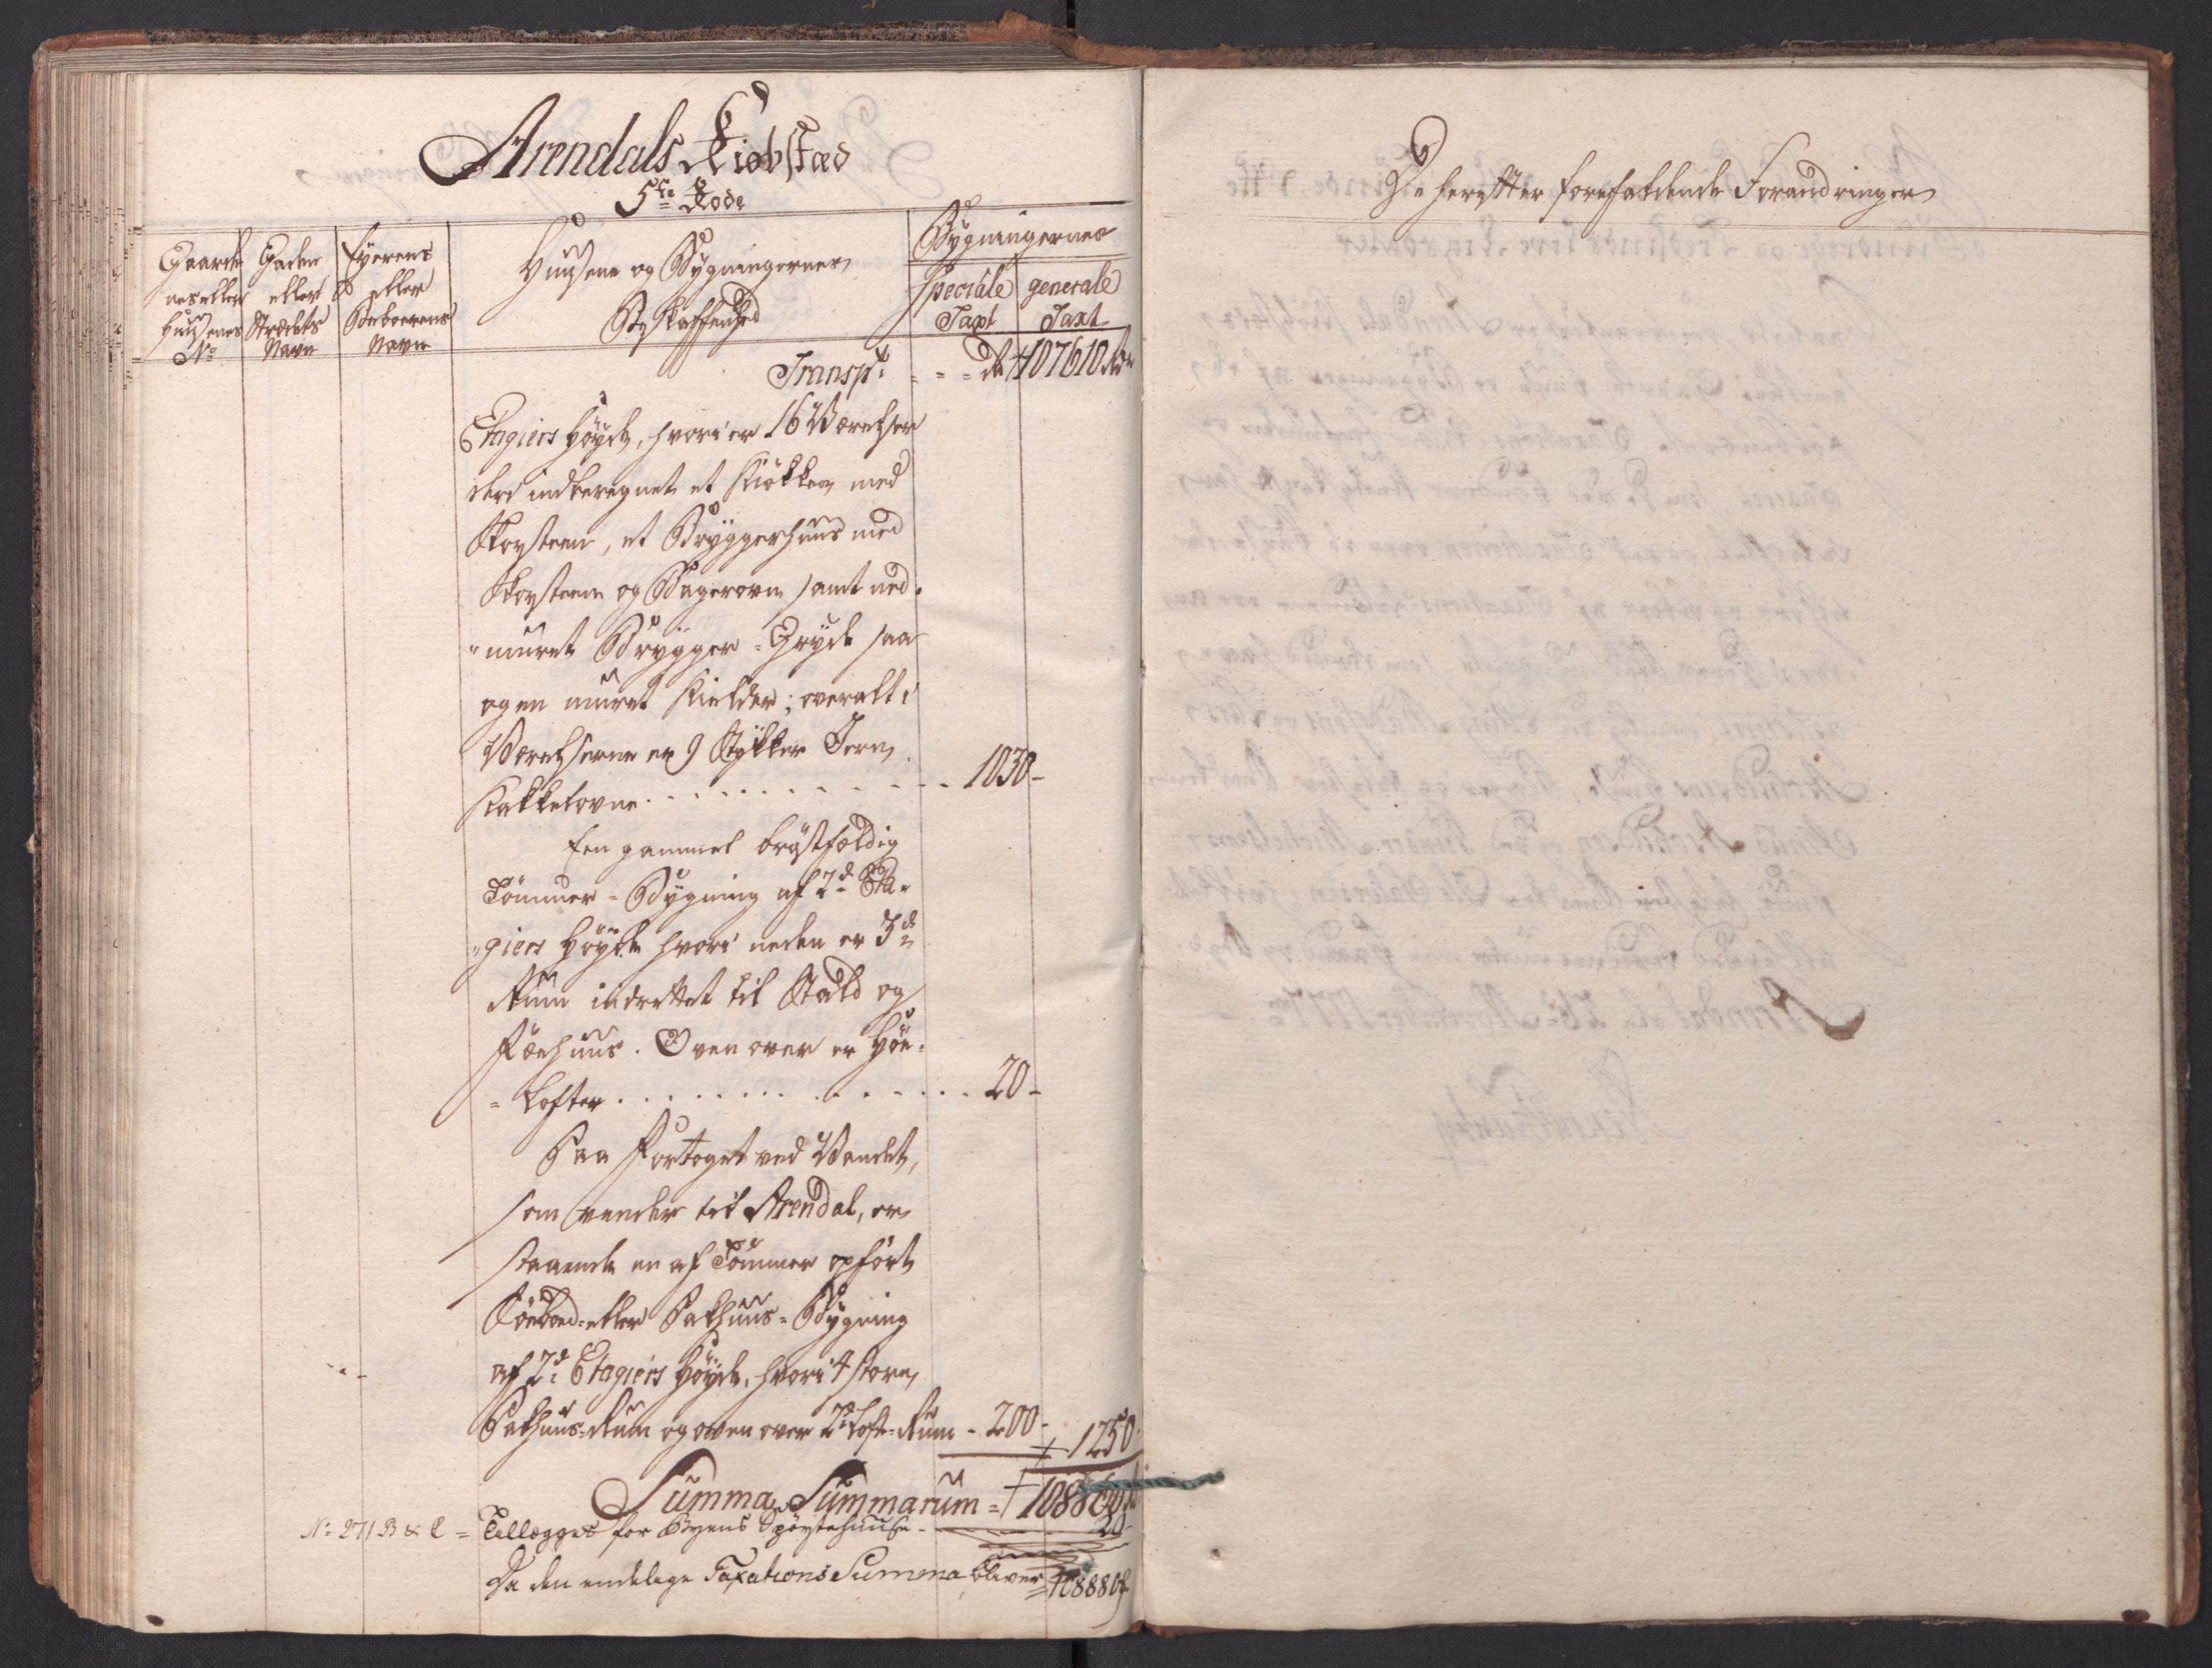 Arendals Kiøbstæd
5te Rode
Gaarde
nes eller
Huusenes
No
Gaden
eller
Strædets
Navn
Eyerens
eller
Beboerens
Navn
Huusene og Bygningernes
Beskaffenhed
Bygningernes
speciale Taxt
generale Taxt
Transpt = = - d 107610 rdr
Etagiers høyde, hvori er 16 Værelser
deri indberegnet et Kiøkken med
Skorsteen, et Bryggerhuus med
Skorsteen og Bagerovn samt ned-
"muret Brygger-Gryde saa
og en muret Kielder; overalt i
Værelserne er 9 Stykker Jern
Kakkelovne . . . . . . . . . . . 1030-
Een gammel brøstfældig
Tømmer-Bygning af 2de Eta-
"giers høyde hvori neden er 3de
Rum indrettet til Stald og
Fæehuus. Oven over er Høe-
=lofter . . . . . . . . . . . . . 20-
Paa Fortoget ved Vandet,
som vender til Arendal, er
staaende en af Tømmer opført
Søeboed- eller Pakhuus-Bygning
af 2de Etagiers høyde, hvori 4 store
Pakhuus-Rum og oven over 2de loft-Rum - 200-
1250
Summa Summarum = 108860
No 271 B & C = Tillægges for Byens Spøytehuuse - 20
Da den endelige Taxations Summa bliver = 108880
De herefter forefaldende Forandringer